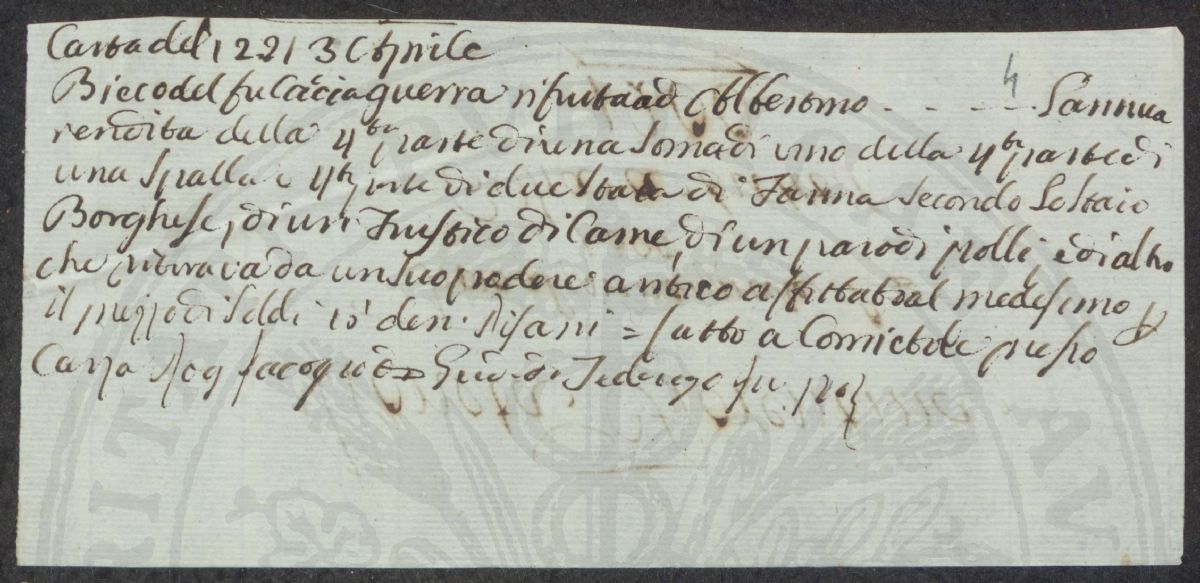 Carta del 1221 3 Aprile
4
Bieco del fu Cacciaguerra rifiuta ad Albertino - - - - - L'annua
rendita della 4ta parte di una Soma di vino della 4ta parte di
una Spalla e 4ta parte di due Staia di Farina secondo Lo Staio
Borghese, di un di Carne, di un paro di polli e di altro
che ritirava da un suo podere antico affittato al medesimo p
il prezzo di Soldi 15 den. Pisani = fatto a presso
Casa Rog Jacopo di Federigo fu